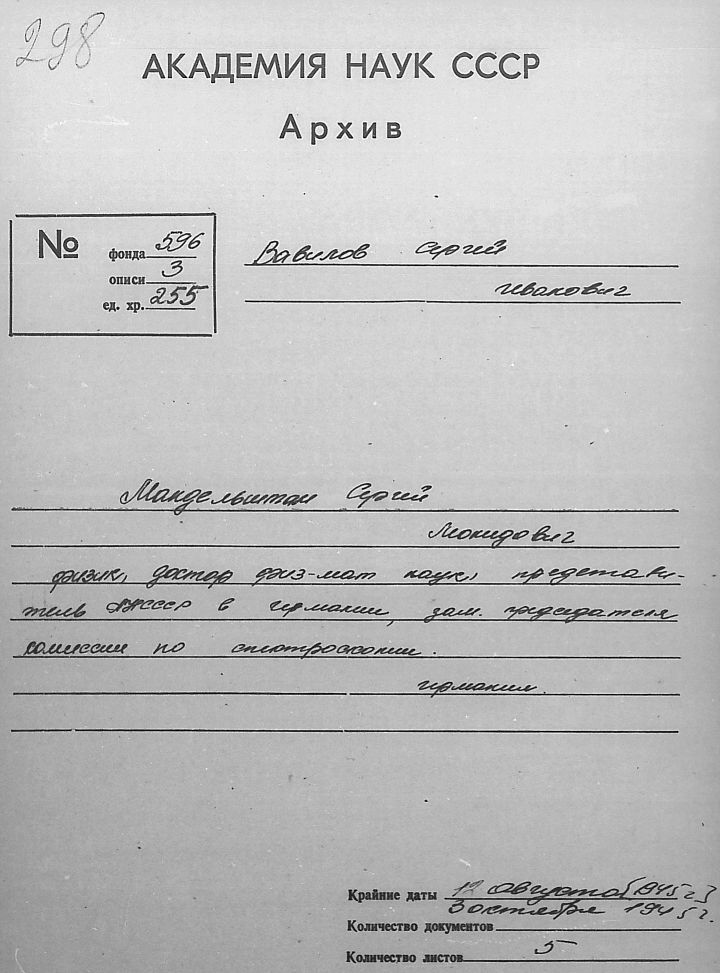 298
АКАДЕМИЯ НАУК СССР
Архив
№
фонда 596
описи 3
ед. хр. 255
Вавилов Сергей
Иванович
Мандельштам Сергей
Леонидович
физик, доктор физ-мат наук, представи-
тель АН СССР в Германии, зам. председателя
комиссии по спектроскопии.
Германия.
Крайние даты 12 августа [1945 г.]
3 октября 1945 г.
Количество документов
Количество листов 5